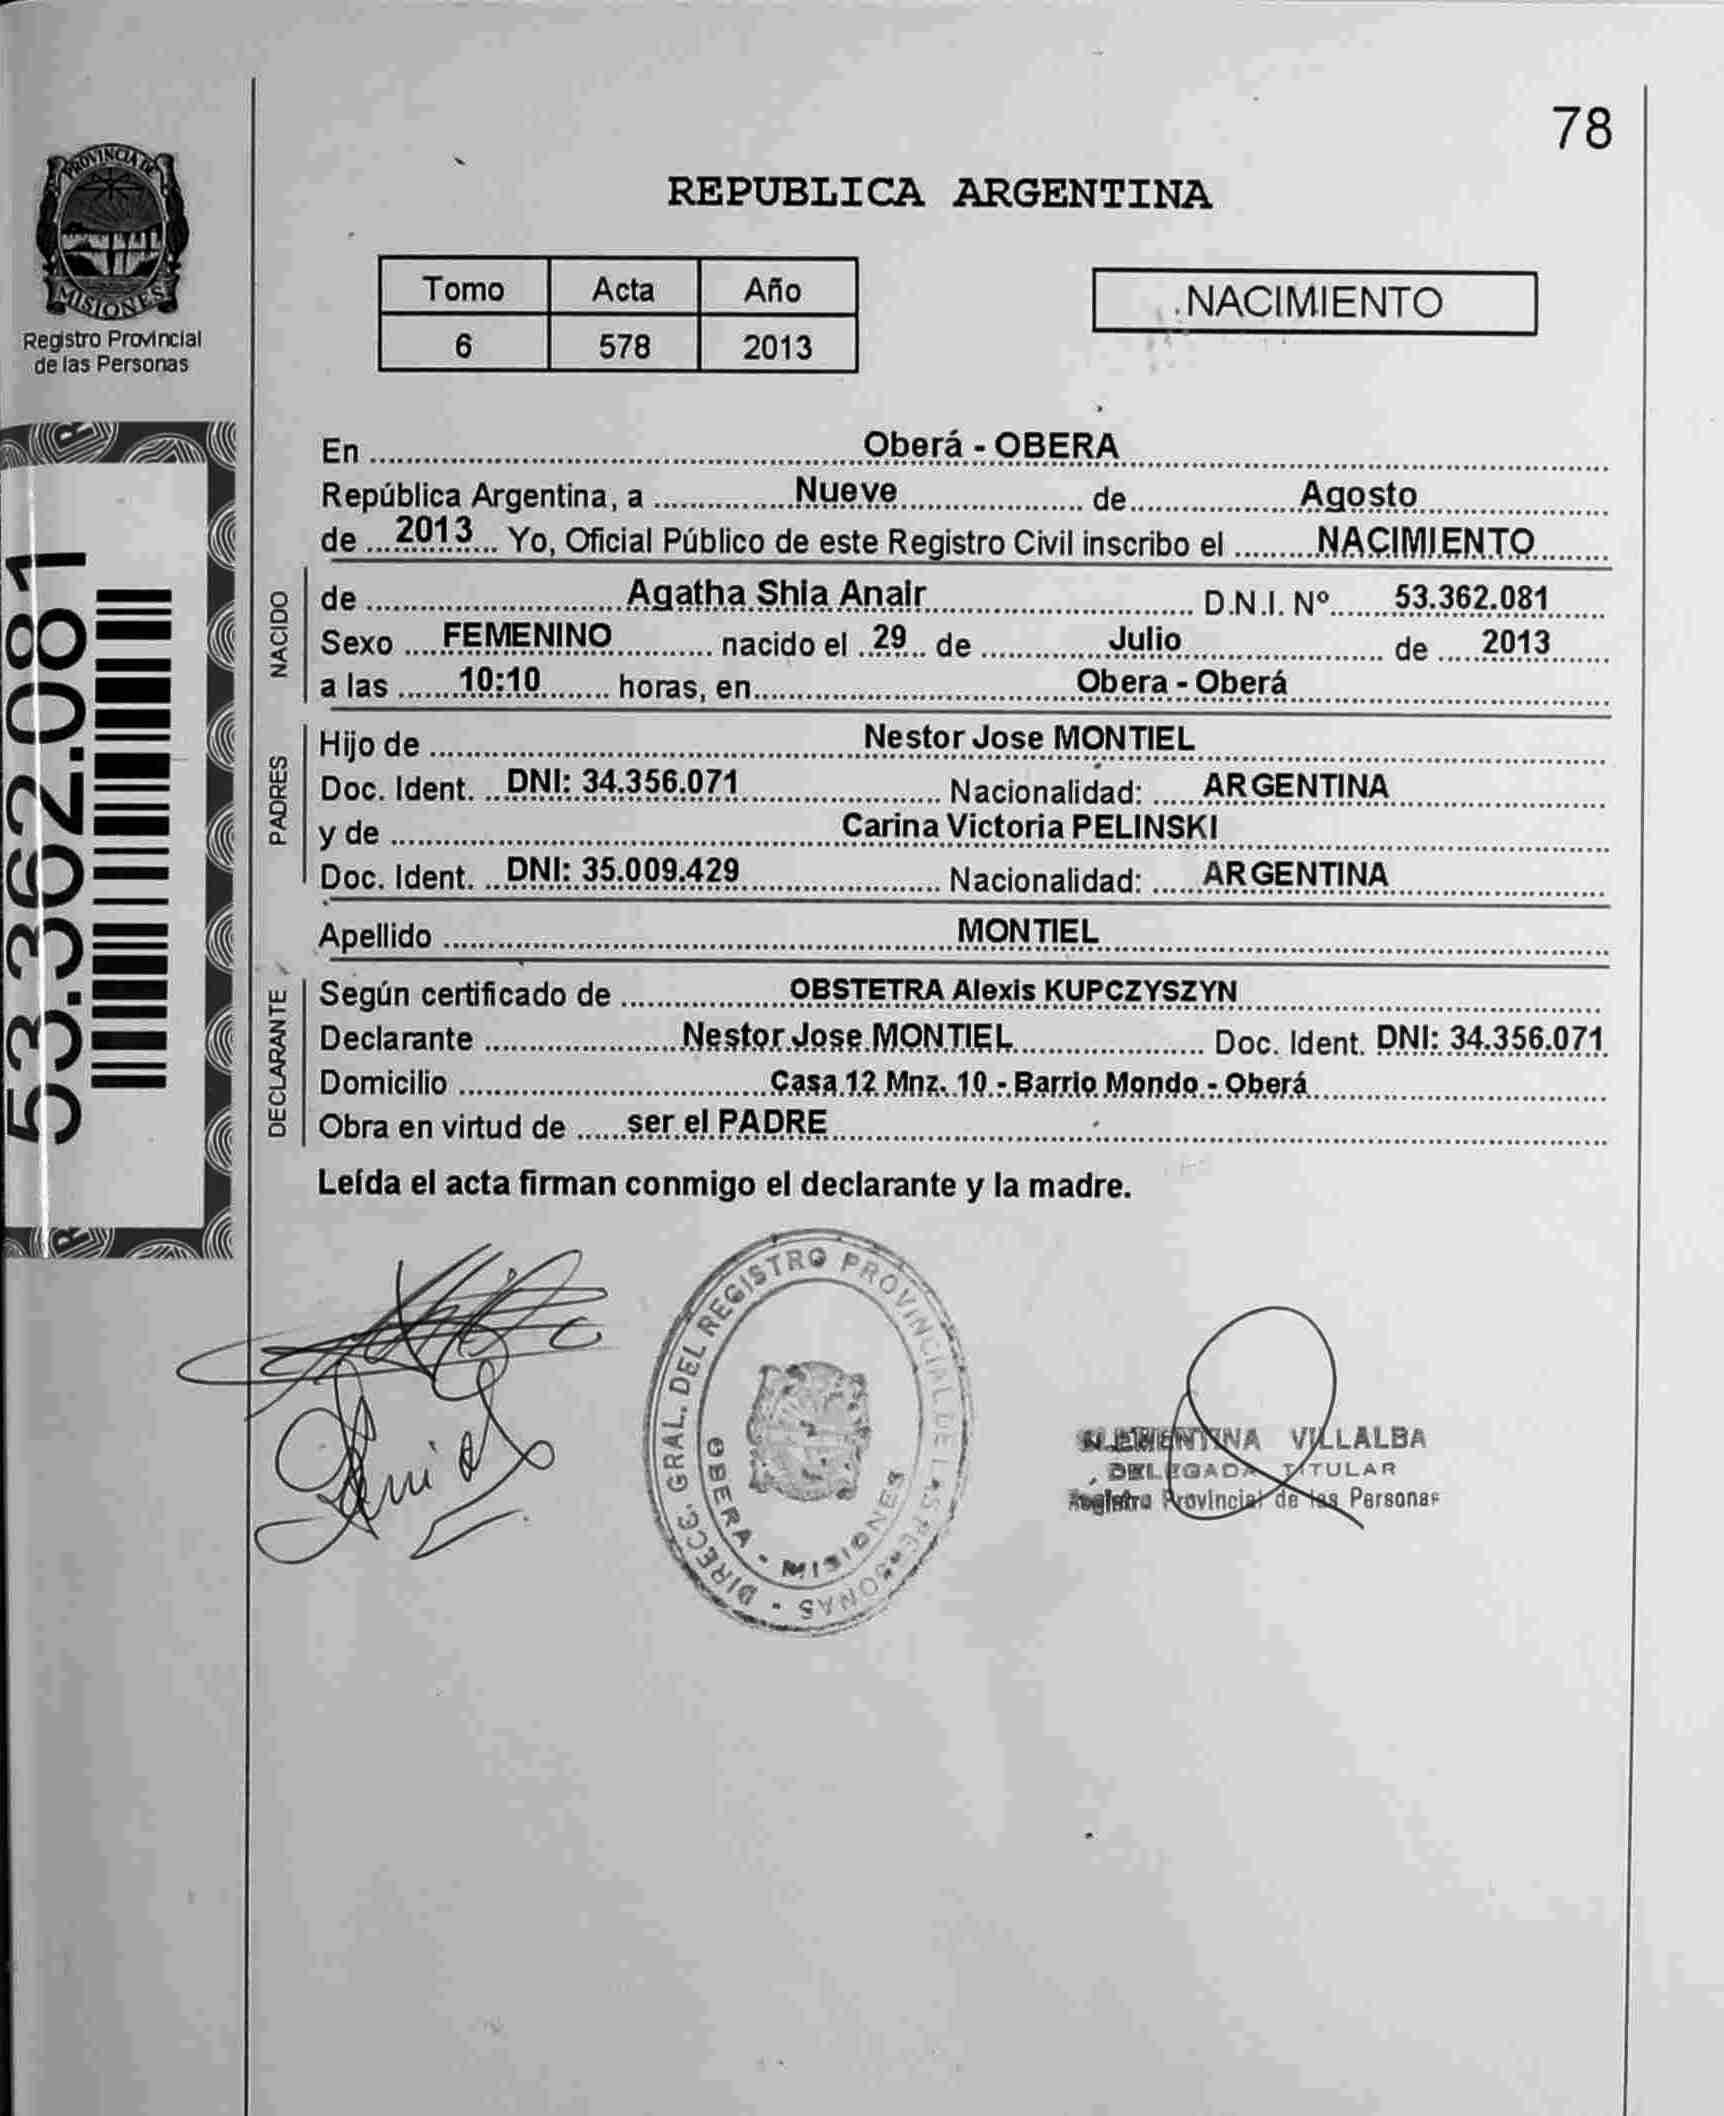 78
PROVINCIA DE
MISIONES
Registro Provincial
de las Personas
REPUBLICA ARGENTINA
Tomo Acta Año
6 578 2013
NACIMIENTO
53.362.081
En Oberá - OBERA
República Argentina, a Nueve de Agosto
de 2013 Yo, Oficial Público de este Registro Civil inscribo el NACIMIENTO
NACIDO
de Agatha Shia Anair D.N.I. Nº 53.362.081
Sexo FEMENINO nacido el 29 de Julio de 2013
a las 10:10 horas, en Obera - Oberá
PADRES
Hijo de Nestor Jose MONTIEL
Doc. Ident. DNI: 34.356.071 Nacionalidad: ARGENTINA
y de Carina Victoria PELINSKI
Doc. Ident. DNI: 35.009.429 Nacionalidad: ARGENTINA
Apellido MONTIEL
DECLARANTE
Según certificado de OBSTETRA Alexis KUPCZYSZYN
Declarante Nestor Jose MONTIEL Doc. Ident. DNI: 34.356.071
Domicilio Casa 12 Mnz. 10 - Barrio Mondo - Oberá
Obra en virtud de ser el PADRE
Leída el acta firman conmigo el declarante y la madre.
DIRECC. GRAL. DEL REGISTRO PROVINCIAL DE LAS PERSONAS
OBERA - MISIONES
VILLALBA
DELEGADA TITULAR
Registro Provincial de las Personas